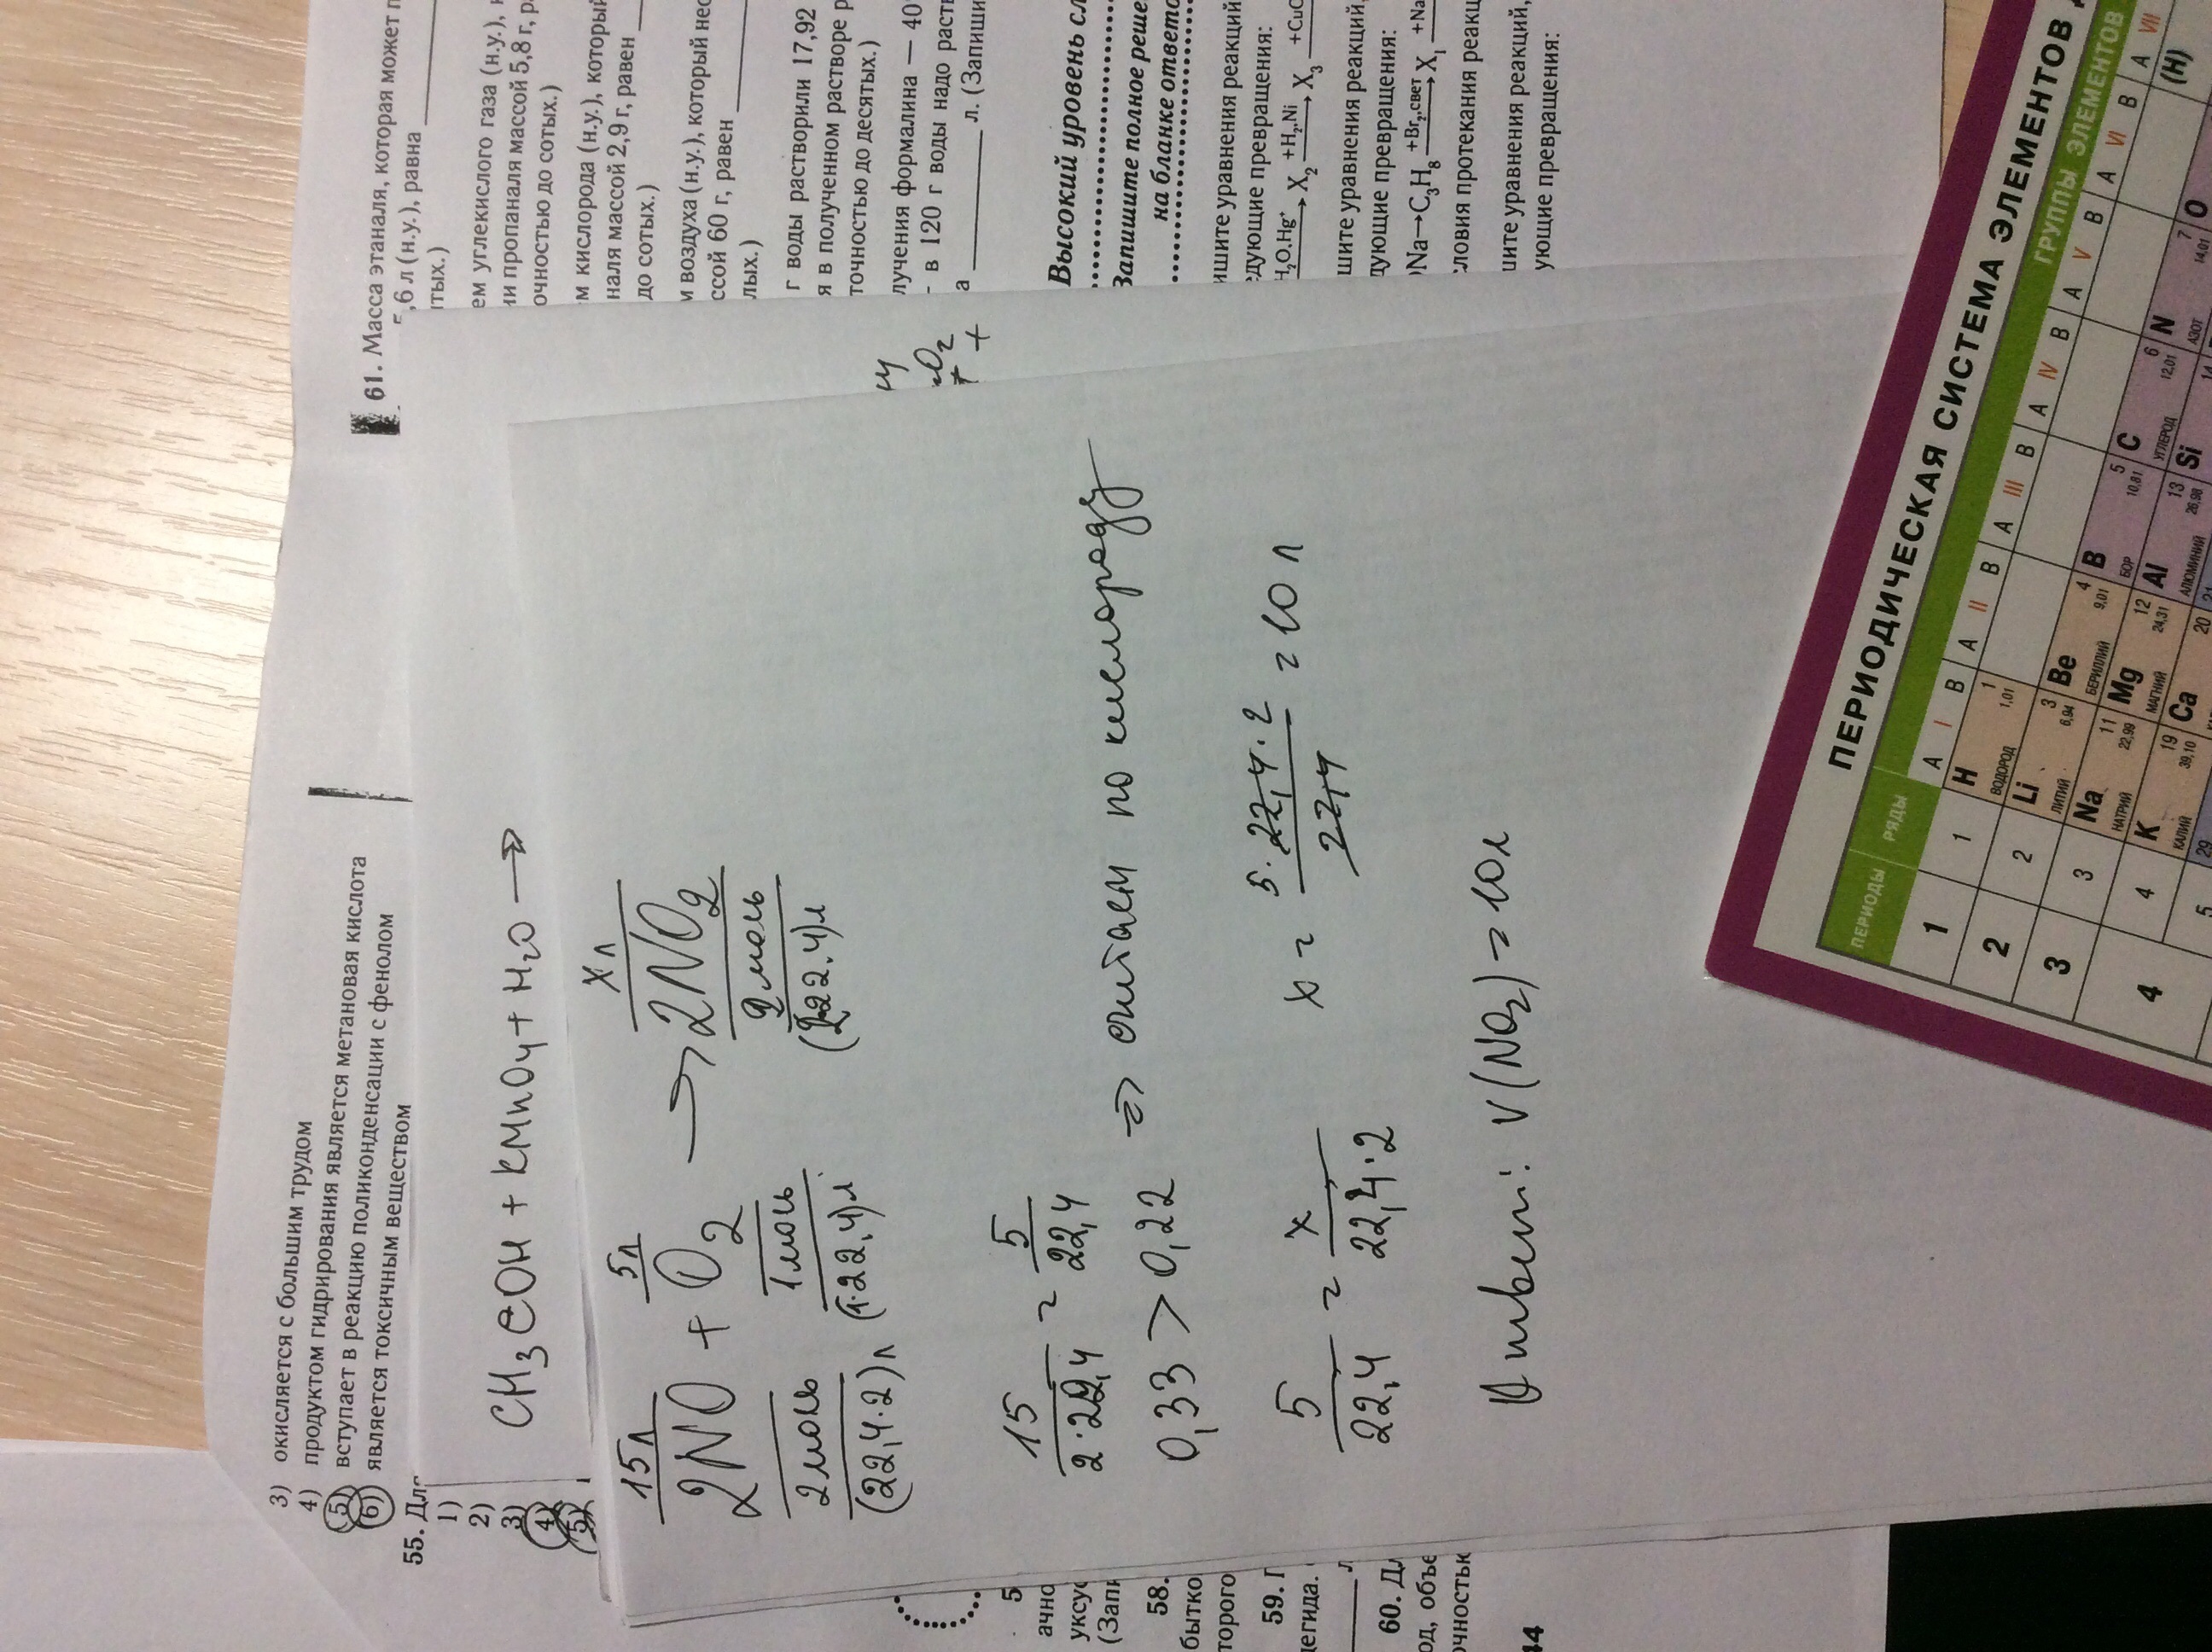 3) окисляется с большим трудом
4) продуктом гидрирования является метановая кислота
5) вступает в реакцию поликонденсации с фенолом
6) является токсичным веществом
55. Дл
1)
2)
3)
4)
5)
CH3COH + KMnO4 + H2O →
15л 5л xл
2NO + O2 → 2NO2
2моль 1моль 2моль
(22,4·2)л (1·22,4)л (2·22.4)л
15/2·22,4 = 5/22,4
0,33 > 0,22 => считаем по кислороду
5/22,4 = x/22,4·2 x = 5·22,4·2/22,4 = 10 л
Ответ: V(NO2) = 10л
61. Масса этаналя, которая может п
5,6 л (н.у.), равна
тых.)
ем углекислого газа (н.у.),
ии пропаналя массой 5,8 г, р
очностью до сотых.)
м кислорода (н.у.), который
наля массой 2,9 г, равен
до сотых.)
м воздуха (н.у.), который нес
ссой 60 г, равен
лых.)
г воды растворили 17,92
я в полученном растворе р
точностью до десятых.)
лучения формалина — 40
- в 120 г воды надо раств
а л. (Запиши
Высокий уровень сл
Запишите полное реше
на бланке ответо
ишите уравнения реакций
едующие превращения:
H2O,Hg+ → X2 +H2,Ni → X3 +CuO
шите уравнения реакций,
дующие превращения:
Na→C3H8 +Br2,свет → X1 +Na
словия протекания реакц
шите уравнения реакций,
ующие превращения:
5
ачно
уксу
(Запи
58.
бытко
торого
59. П
дегида.
л
60. Дл
од, объе
очностьк
44
ПЕРИОДИЧЕСКАЯ СИСТЕМА ЭЛЕМЕНТОВ
ПЕРИОДЫ РЯДЫ ГРУППЫ ЭЛЕМЕНТОВ
A I B A II B A III B A IV B A V B A VI B A VII
1 1 H 1 1,01 ВОДОРОД (H)
2 2 Li 3 6,94 ЛИТИЙ Be 4 9,01 БЕРИЛЛИЙ B 5 10,81 БОР C 6 12,01 УГЛЕРОД N 7 14,01 АЗОТ O
3 3 Na 11 22,99 НАТРИЙ Mg 12 24,31 МАГНИЙ Al 13 26,98 АЛЮМИНИЙ Si 14
4 4 K 19 39,10 КАЛИЙ Ca 20 21
5 29